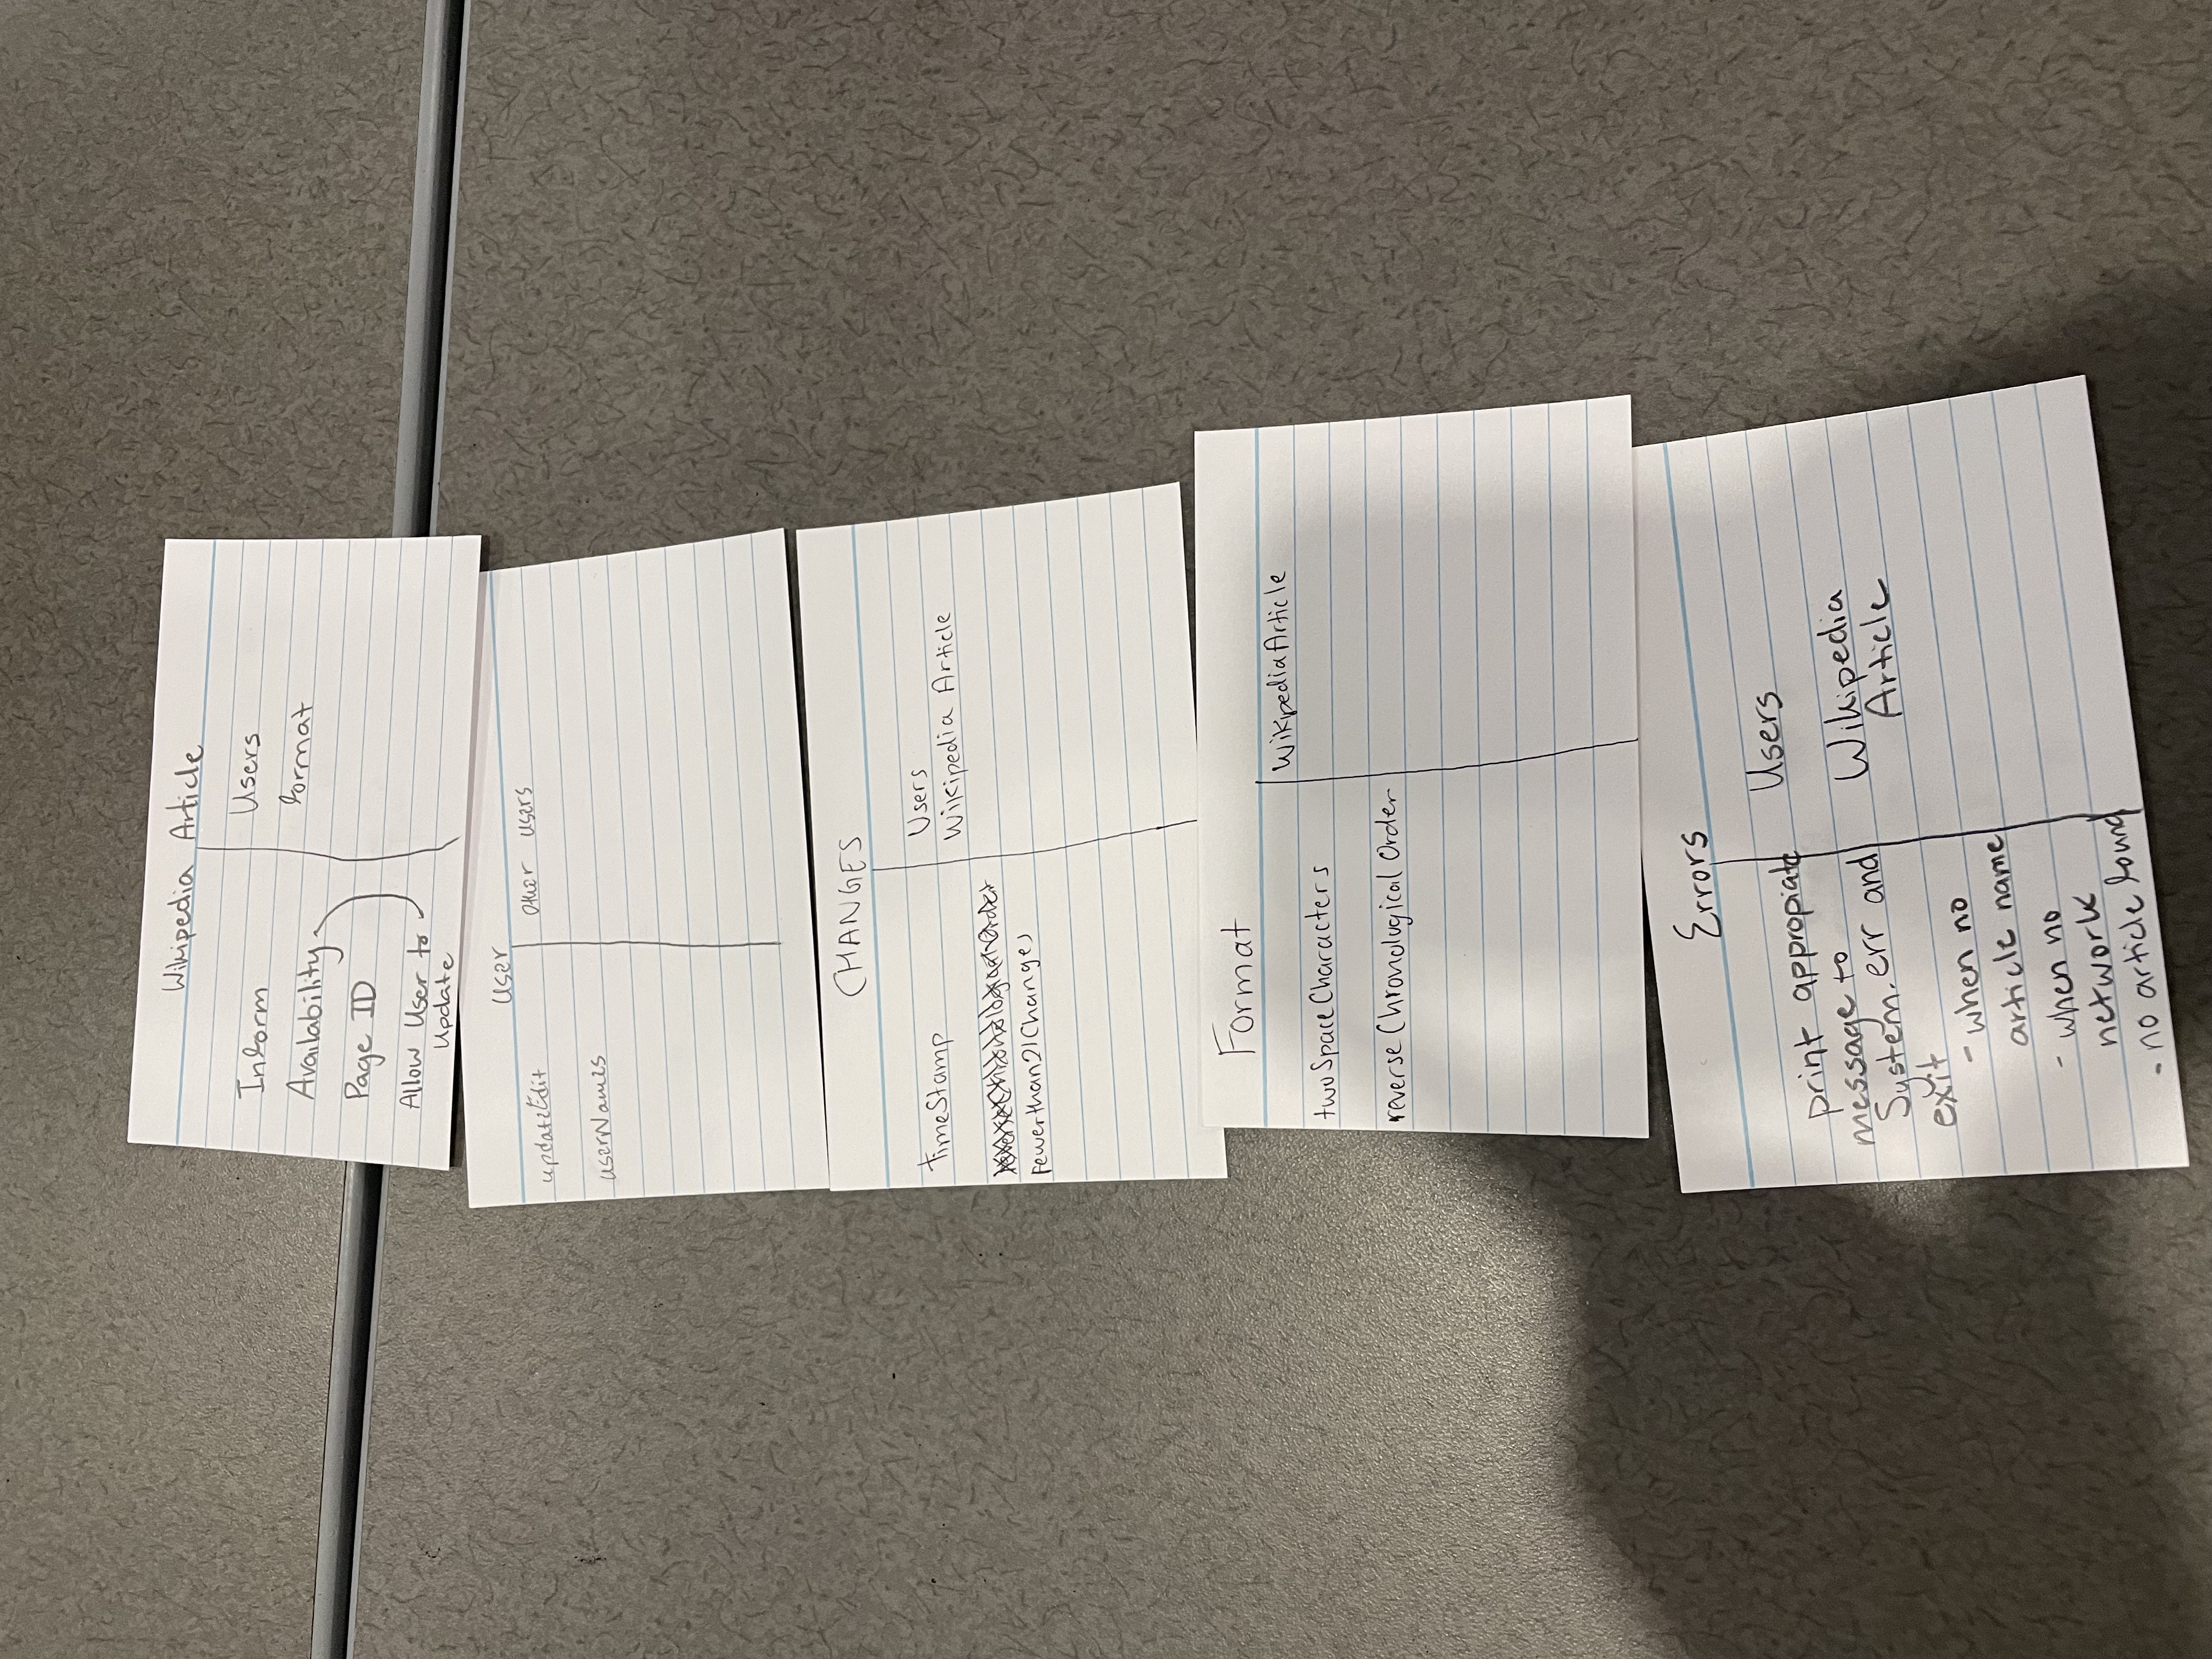 Wikipedia Article
Inform
Availability
Page ID
Allow User to
Update
Users
format
User
updateEdit
userNames
Other users
CHANGES
timeStamp
reverseChronologicalOrder
Fewerthan21Changes
Users
Wikipedia Article
Format
twoSpaceCharacters
reverseChronological Order
WikipediaArticle
Errors
print appropiate
message to
System.err and
exit
- when no
article name
- when no
network
- no article found
Users
Wikipedia
Article